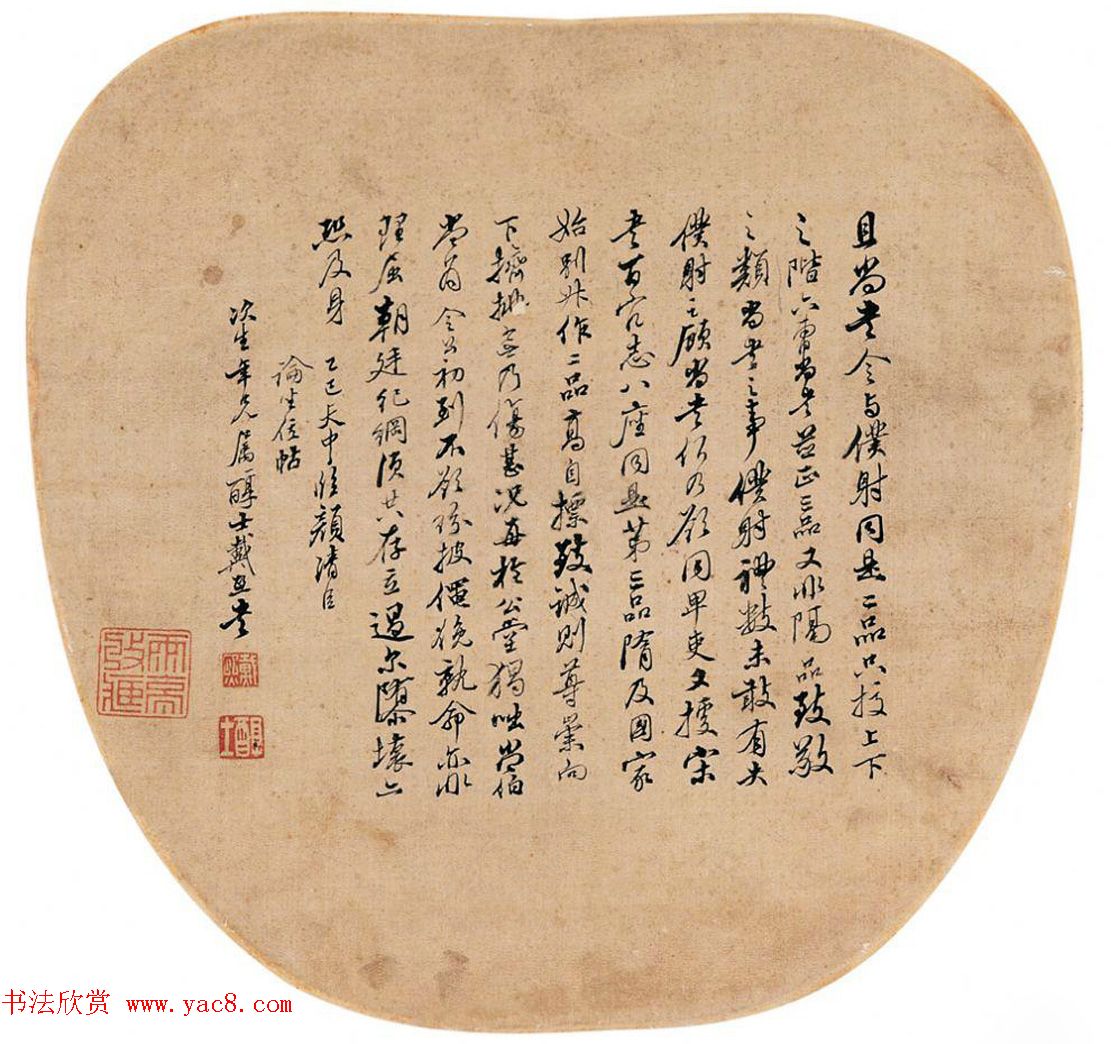 且尚書令与僕射同是二品只校上下
之階六曹尚書並正三品又非隔品致敬
之類尚書之事僕射禮數未敢有失
僕射之顧尚書何乃欲同卑吏又據宋
書百官志八座同是第三品隋及國家
始別升作二品高自標致誠則尊崇向
下擠排無乃傷甚況再於公堂猲咄常伯
當為令公初到不欲紛披僶俛就命亦非
理屈朝廷紀綱須共存立過尔隳壞亦
恐及身 乙巳天中临顏清臣
論坐位帖
次生年兄属醇士戴熙書
戴熙
醇士
书法欣赏 www.yac8.com